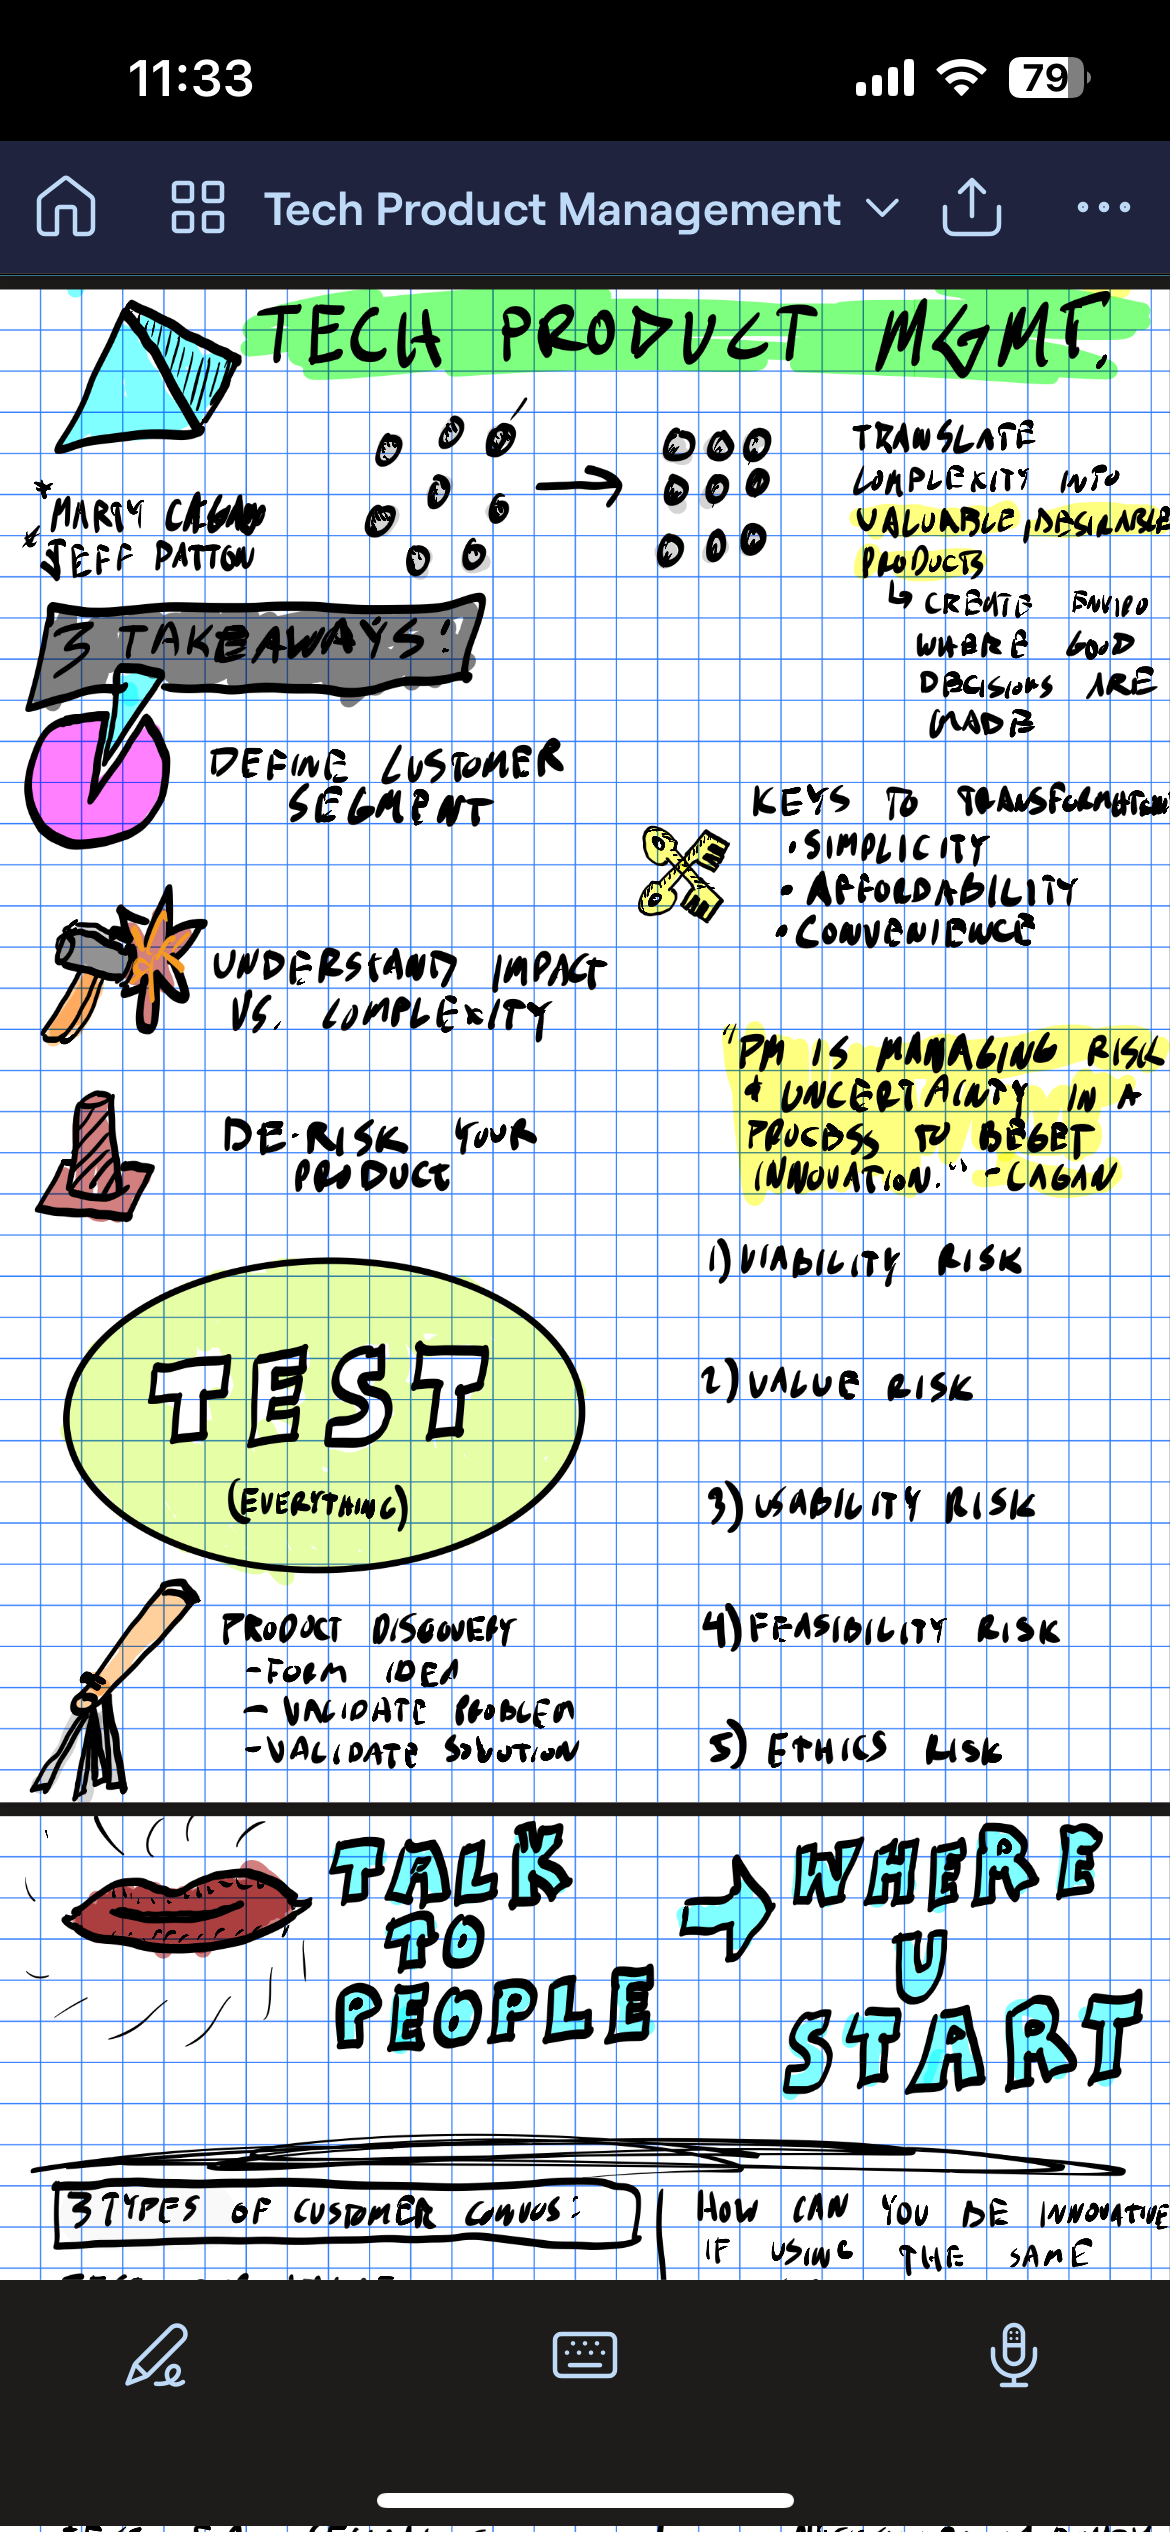 11:33
79
Tech Product Management
TECH PRODUCT MGMT.
* MARTY CAGAN
* JEFF PATTON
TRANSLATE
COMPLEXITY INTO
VALUABLE, DESIRABLE
PRODUCTS
CREATE ENVIRO
WHERE GOOD
DECISIONS ARE
MADE
3 TAKEAWAYS:
DEFINE CUSTOMER
SEGMENT
UNDERSTAND IMPACT
VS. COMPLEXITY
DE-RISK YOUR
PRODUCT
KEYS TO TRANSFORMATION
• SIMPLICITY
• AFFORDABILITY
• CONVENIENCE
"PM IS MANAGING RISK
+ UNCERTAINTY IN A
PROCESS TO BEGET
INNOVATION." - CAGAN
1) VIABILITY RISK
2) VALUE RISK
3) USABILITY RISK
4) FEASIBILITY RISK
5) ETHICS RISK
TEST
(EVERYTHING)
PRODUCT DISCOVERY
- FORM IDEA
- VALIDATE PROBLEM
- VALIDATE SOLUTION
TALK
TO
PEOPLE
WHERE
U
START
3 TYPES OF CUSTOMER CONVOS:
HOW CAN YOU BE INNOVATIVE
IF USING THE SAME